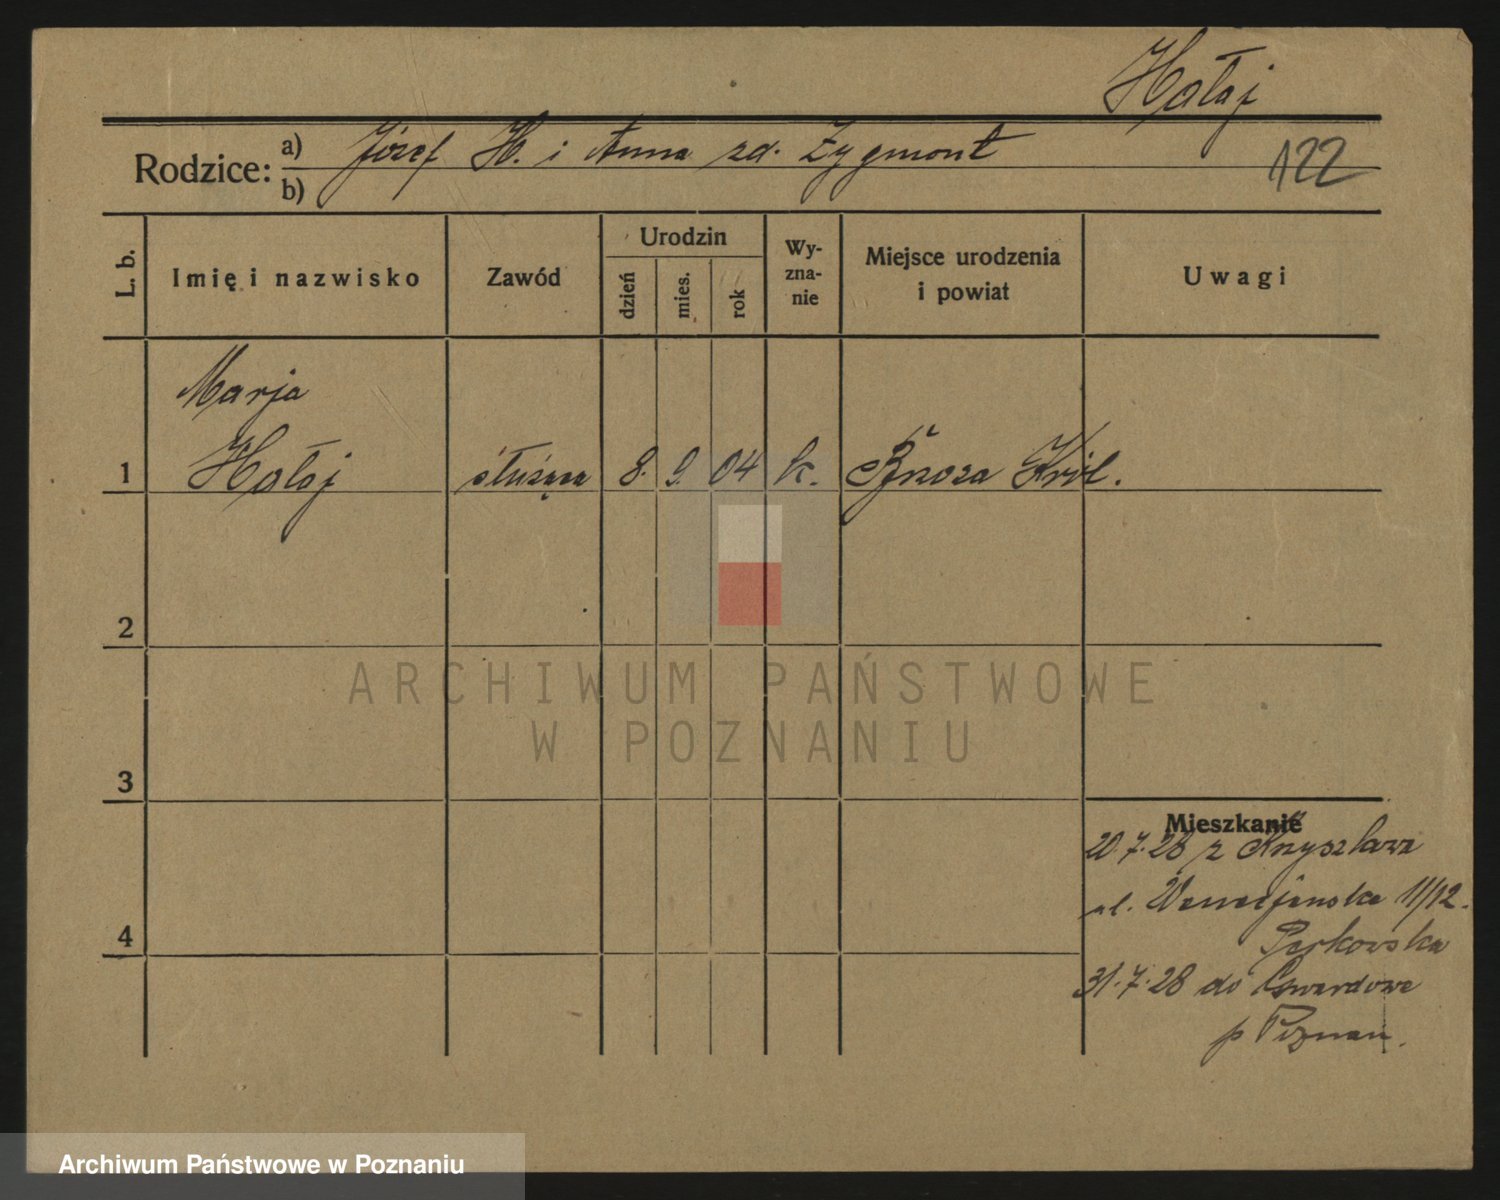 Hołaj
Rodzice: a) Józef H. i Anna zd. Zygmont
b)
122
L. b.
Imię i nazwisko
Zawód
Urodzin
dzień
mies.
rok
Wy-
zna-
nie
Miejsce urodzenia
i powiat
Uwagi
Marja
1 Hołaj służąca 8. 9. 04 k. Brzoza Król.
2
3
4
Mieszkanie
20.7.28 z
ul. 11/12.
31.7.28 do
p Poznan.
ARCHIWUM PAŃSTWOWE
W POZNANIU
Archiwum Państwowe w Poznaniu